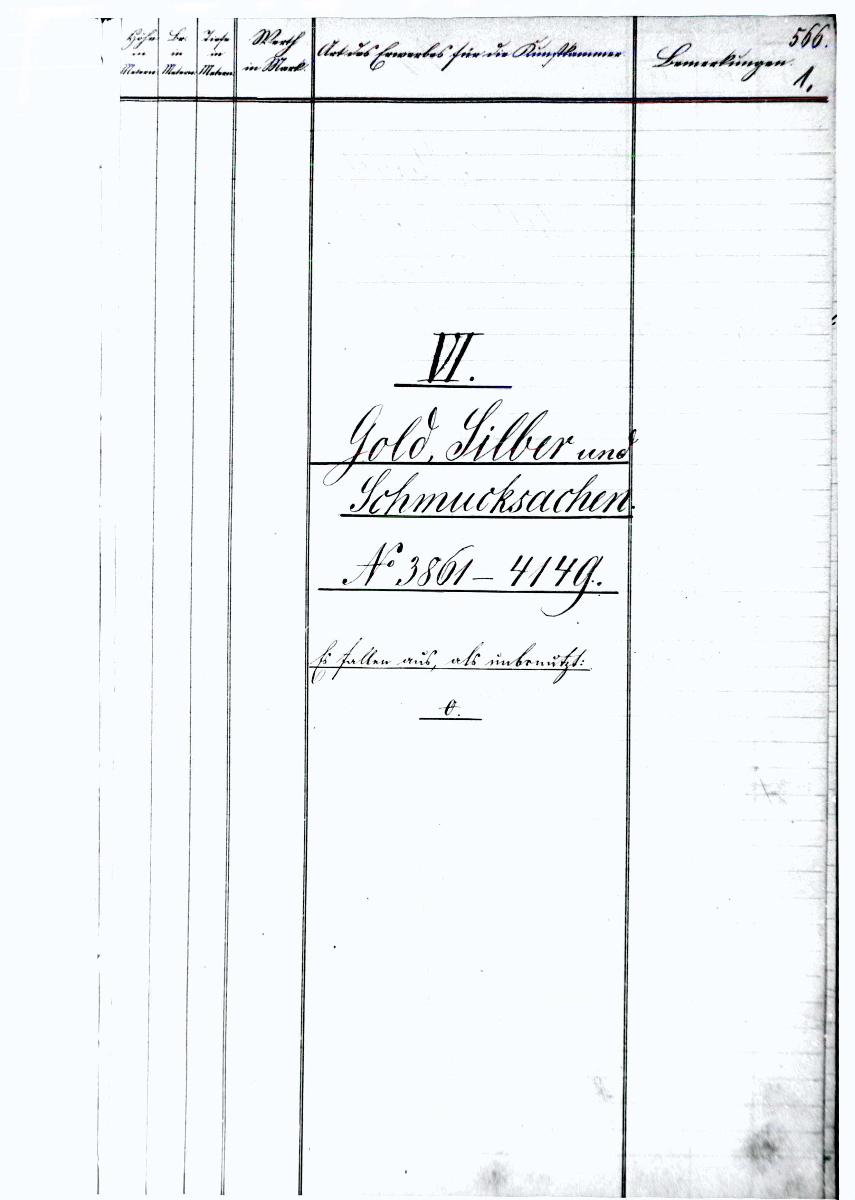 566.
1.
Höhe in Metern.
Br. in Metern.
Tiefe in Metern.
Werth in Mark.
Art des Erwerbes für die Kunstkammer
Bemerkungen.
VI.
Gold, Silber und
Schmucksachen.
No 3861 – 4149.
Es fallen aus, als unbenutzt:
0.